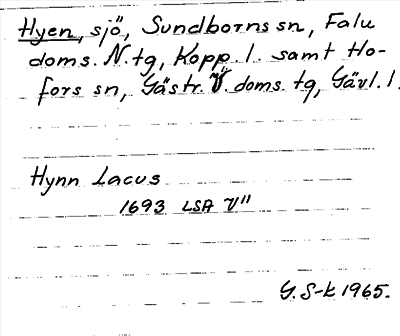 Hyen, sjö, Sundborns sn, Falu
doms. N. tg, Kopp. l. samt Ho-
fors sn, Gästr. V. doms. tg, Gävl. l.
Hynn Lacus
1693 LSA V11
G. S-k 1965.